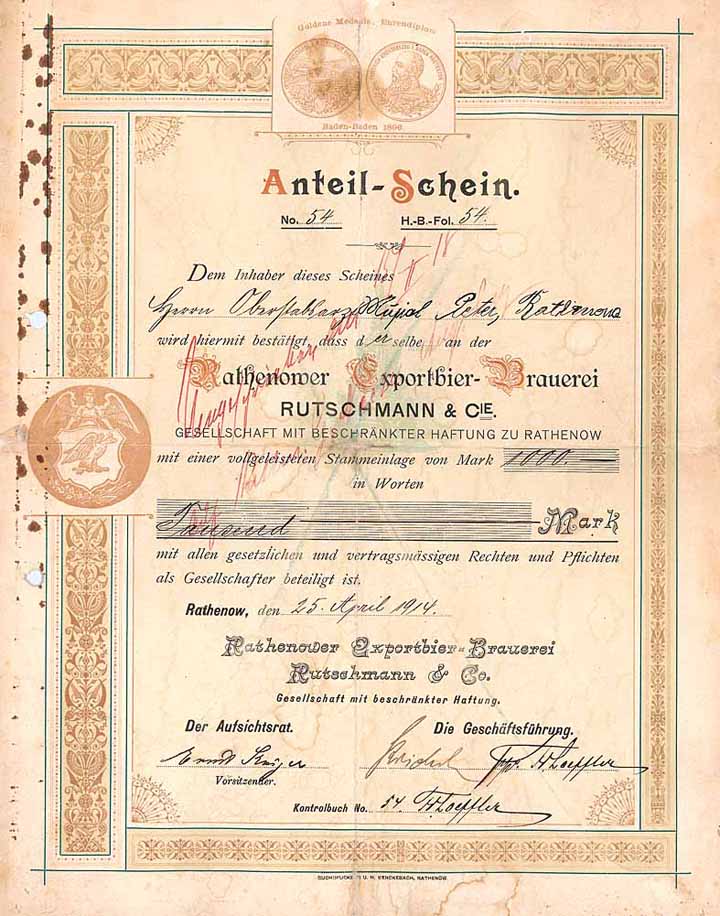 Goldene Medaale, Ehrendiplom
Baden-Baden 1896
Anteil-Schein.
No. 54 H.-B.-Fol. 54.
Dem Inhaber dieses Scheines
Herrn Oberstabsarzt Peter, Rathenow
wird hiermit bestätigt, dass derselbe an der
Rathenower Exportbier-Brauerei
RUTSCHMANN & CIE.
GESELLSCHAFT MIT BESCHRÄNKTER HAFTUNG ZU RATHENOW
mit einer vollgeleisteten Stammeinlage von Mark 1000.
in Worten
Tausend Mark
mit allen gesetzlichen und vertragsmässigen Rechten und Pflichten
als Gesellschafter beteiligt ist.
Rathenow, den 25. April 1914.
Rathenower Exportbier-Brauerei
Rutschmann & Co.
Gesellschaft mit beschränkter Haftung.
Der Aufsichtsrat. Die Geschäftsführung.
H. Loeffler
Vorsitzender.
Kontrolbuch No. 54. H. Loeffler
RATHENOW